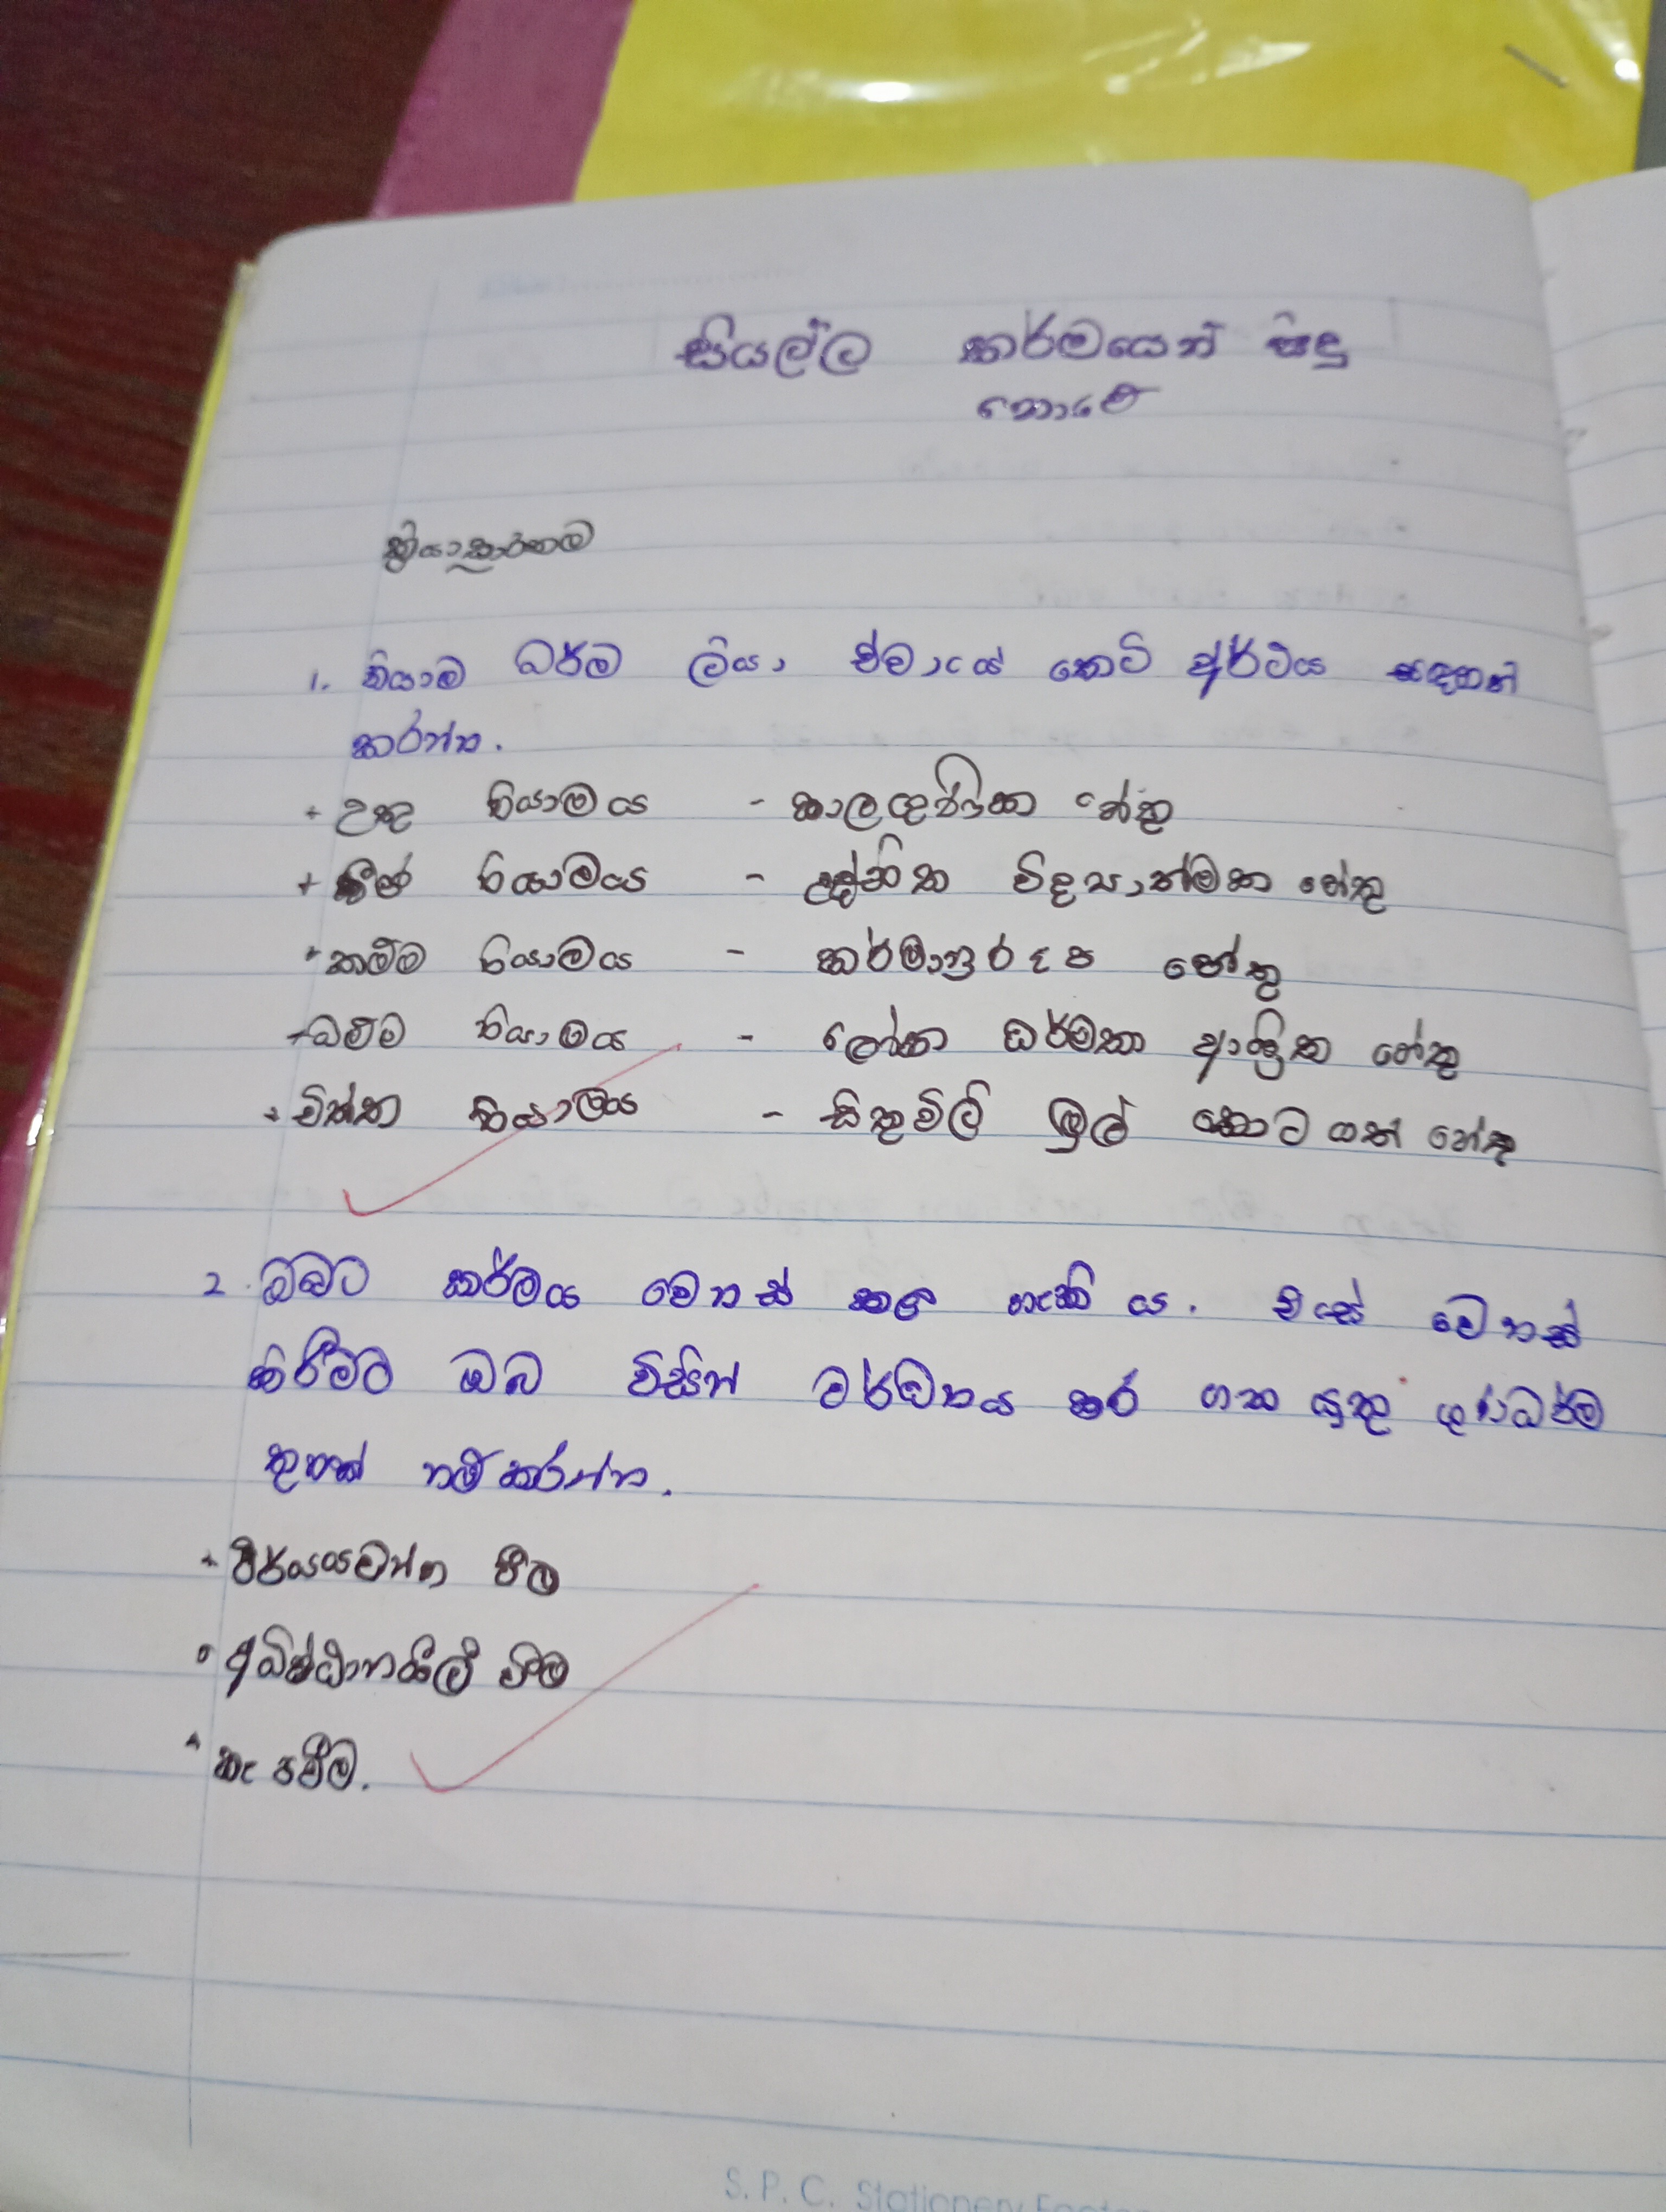 සියල්ල කර්මයෙන් සිදු
නොවේ
ක්‍රියාකාරකම
1. නියාම ධර්ම ලියා ඒවායේ කෙටි අර්ථය සඳහන්
කරන්න.
+ උතු නියාමය - කාලගුණික හේතු
+ බීජ නියාමය - උද්භිත විද්‍යාත්මක හේතු
+ කම්ම නියාමය - කර්මානුරූප හේතු
+ ධම්ම නියාමය - ලෝක ධර්මතා ආශ්‍රිත හේතු
+ චිත්ත නියාමය - සිතුවිලි මුල් කොට ගත් හේතු
2. ඔබට කර්මය වෙනස් කළ හැකි ය. එසේ වෙනස්
කිරීමට ඔබ විසින් වර්ධනය කර ගත යුතු ගුණධර්ම
තුනක් නම් කරන්න.
+ වීර්යයවන්ත වීම
• අධිෂ්ඨානශීලී වීම
කැපවීම.
S. P. C. Stationery